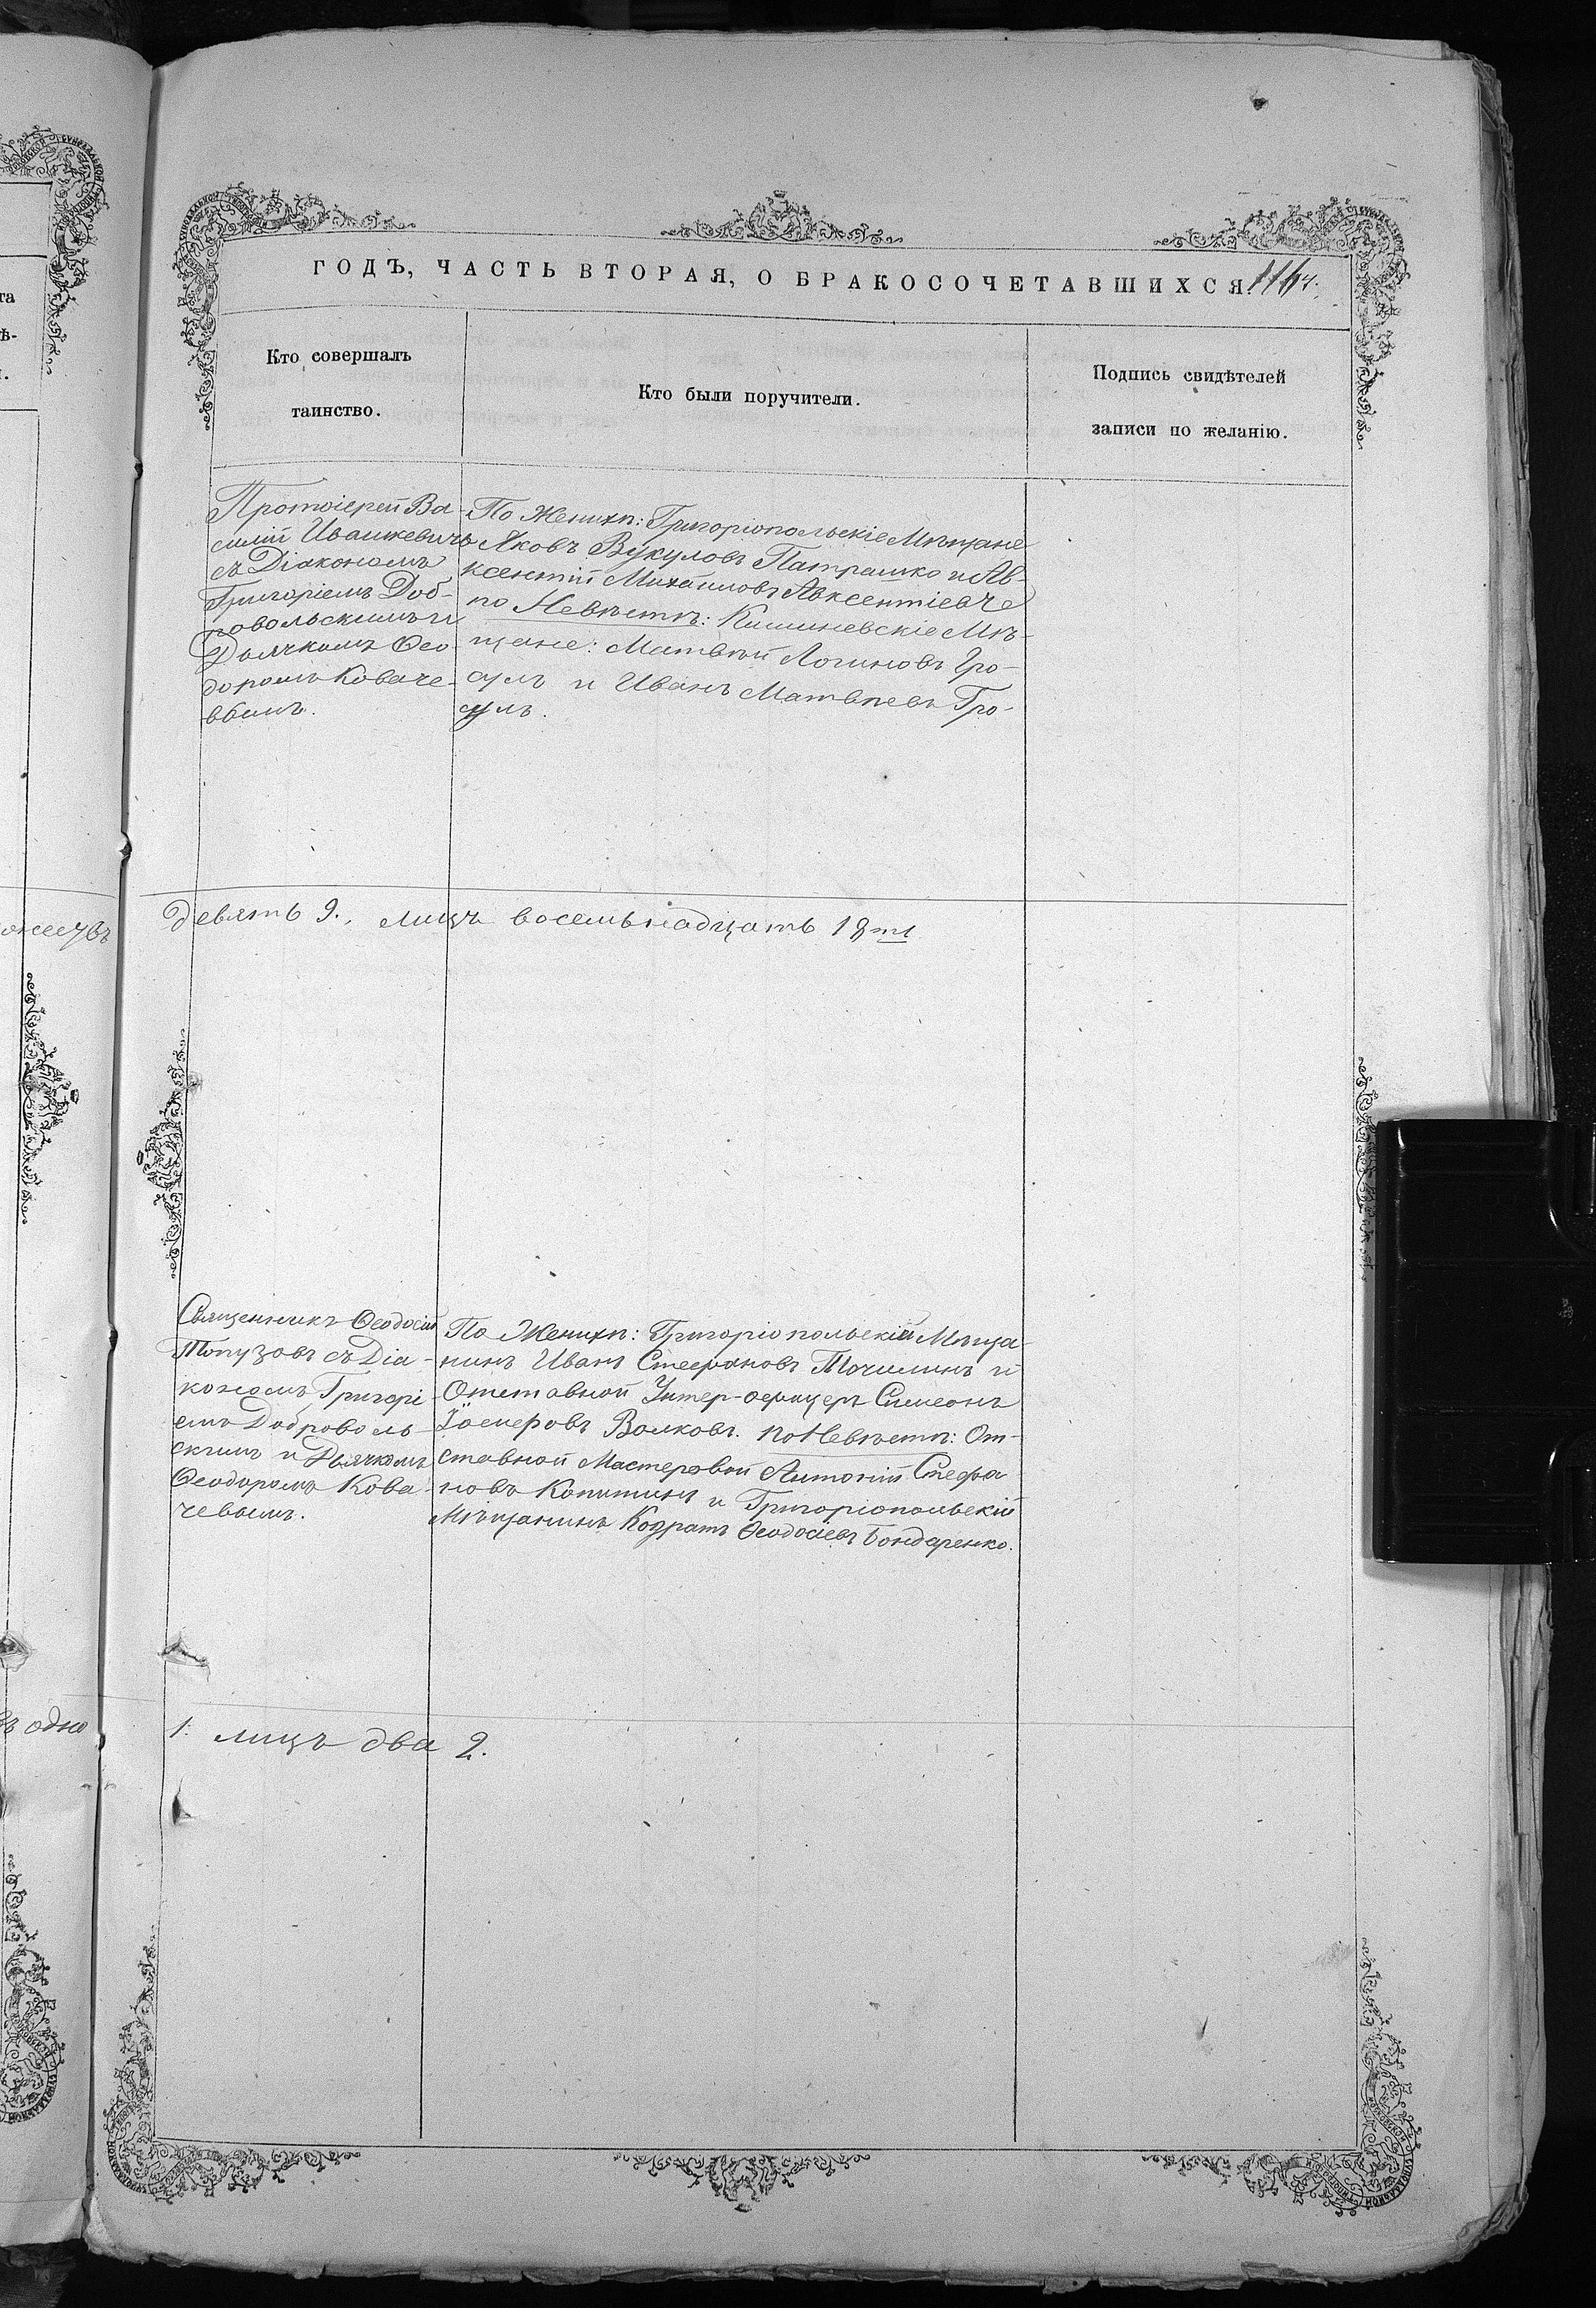 ГОДЪ, ЧАСТЬ ВТОРАЯ, О БРАКОСОЧЕТАВШИХСЯ.
Кто совершалъ
таинство.
Кто были поручители.
Подпись свидѣтелей
записи по желанію.
Протоіерей Ва-
силій Ивашкевичъ
съ Діакономъ
Григоріемъ Доб-
ровольскимъ и
Дьячкомъ Ѳео
доромъ Коваче-
вымъ.
По Женихѣ: Григоріопольскіе Мѣщане
Яковъ Вукуловъ Патрашко и Ав-
ксентій Михайловъ Авксентіевъ
по Невѣстѣ: Кишиневскіе Мѣ-
щане: Матвѣй Логиновъ Гро-
сулъ и Иванъ Матвѣевъ Гро-
сулъ.
девять 9. лицъ восемьнадцать 18ть
Священникъ Ѳеодосій
Топузовъ съ Діа-
кономъ Григорі
емъ Доброволь-
скимъ и Дьячкомъ
Ѳеодоромъ Кова-
чевымъ.
По Женихѣ: Григоріопольскій Мѣща-
нинъ Иванъ Стефановъ Мочилинъ и
Отставной Унтер-офицеръ Симеонъ
Волковъ. по Невѣстѣ: От-
ставной Мастеровой Антоній Стефа
новъ Копитинъ и Григоріопольскій
Мѣщанинъ Кодратъ Ѳеодосіевъ Бондаренко.
1. лицъ два 2.
ъ одно